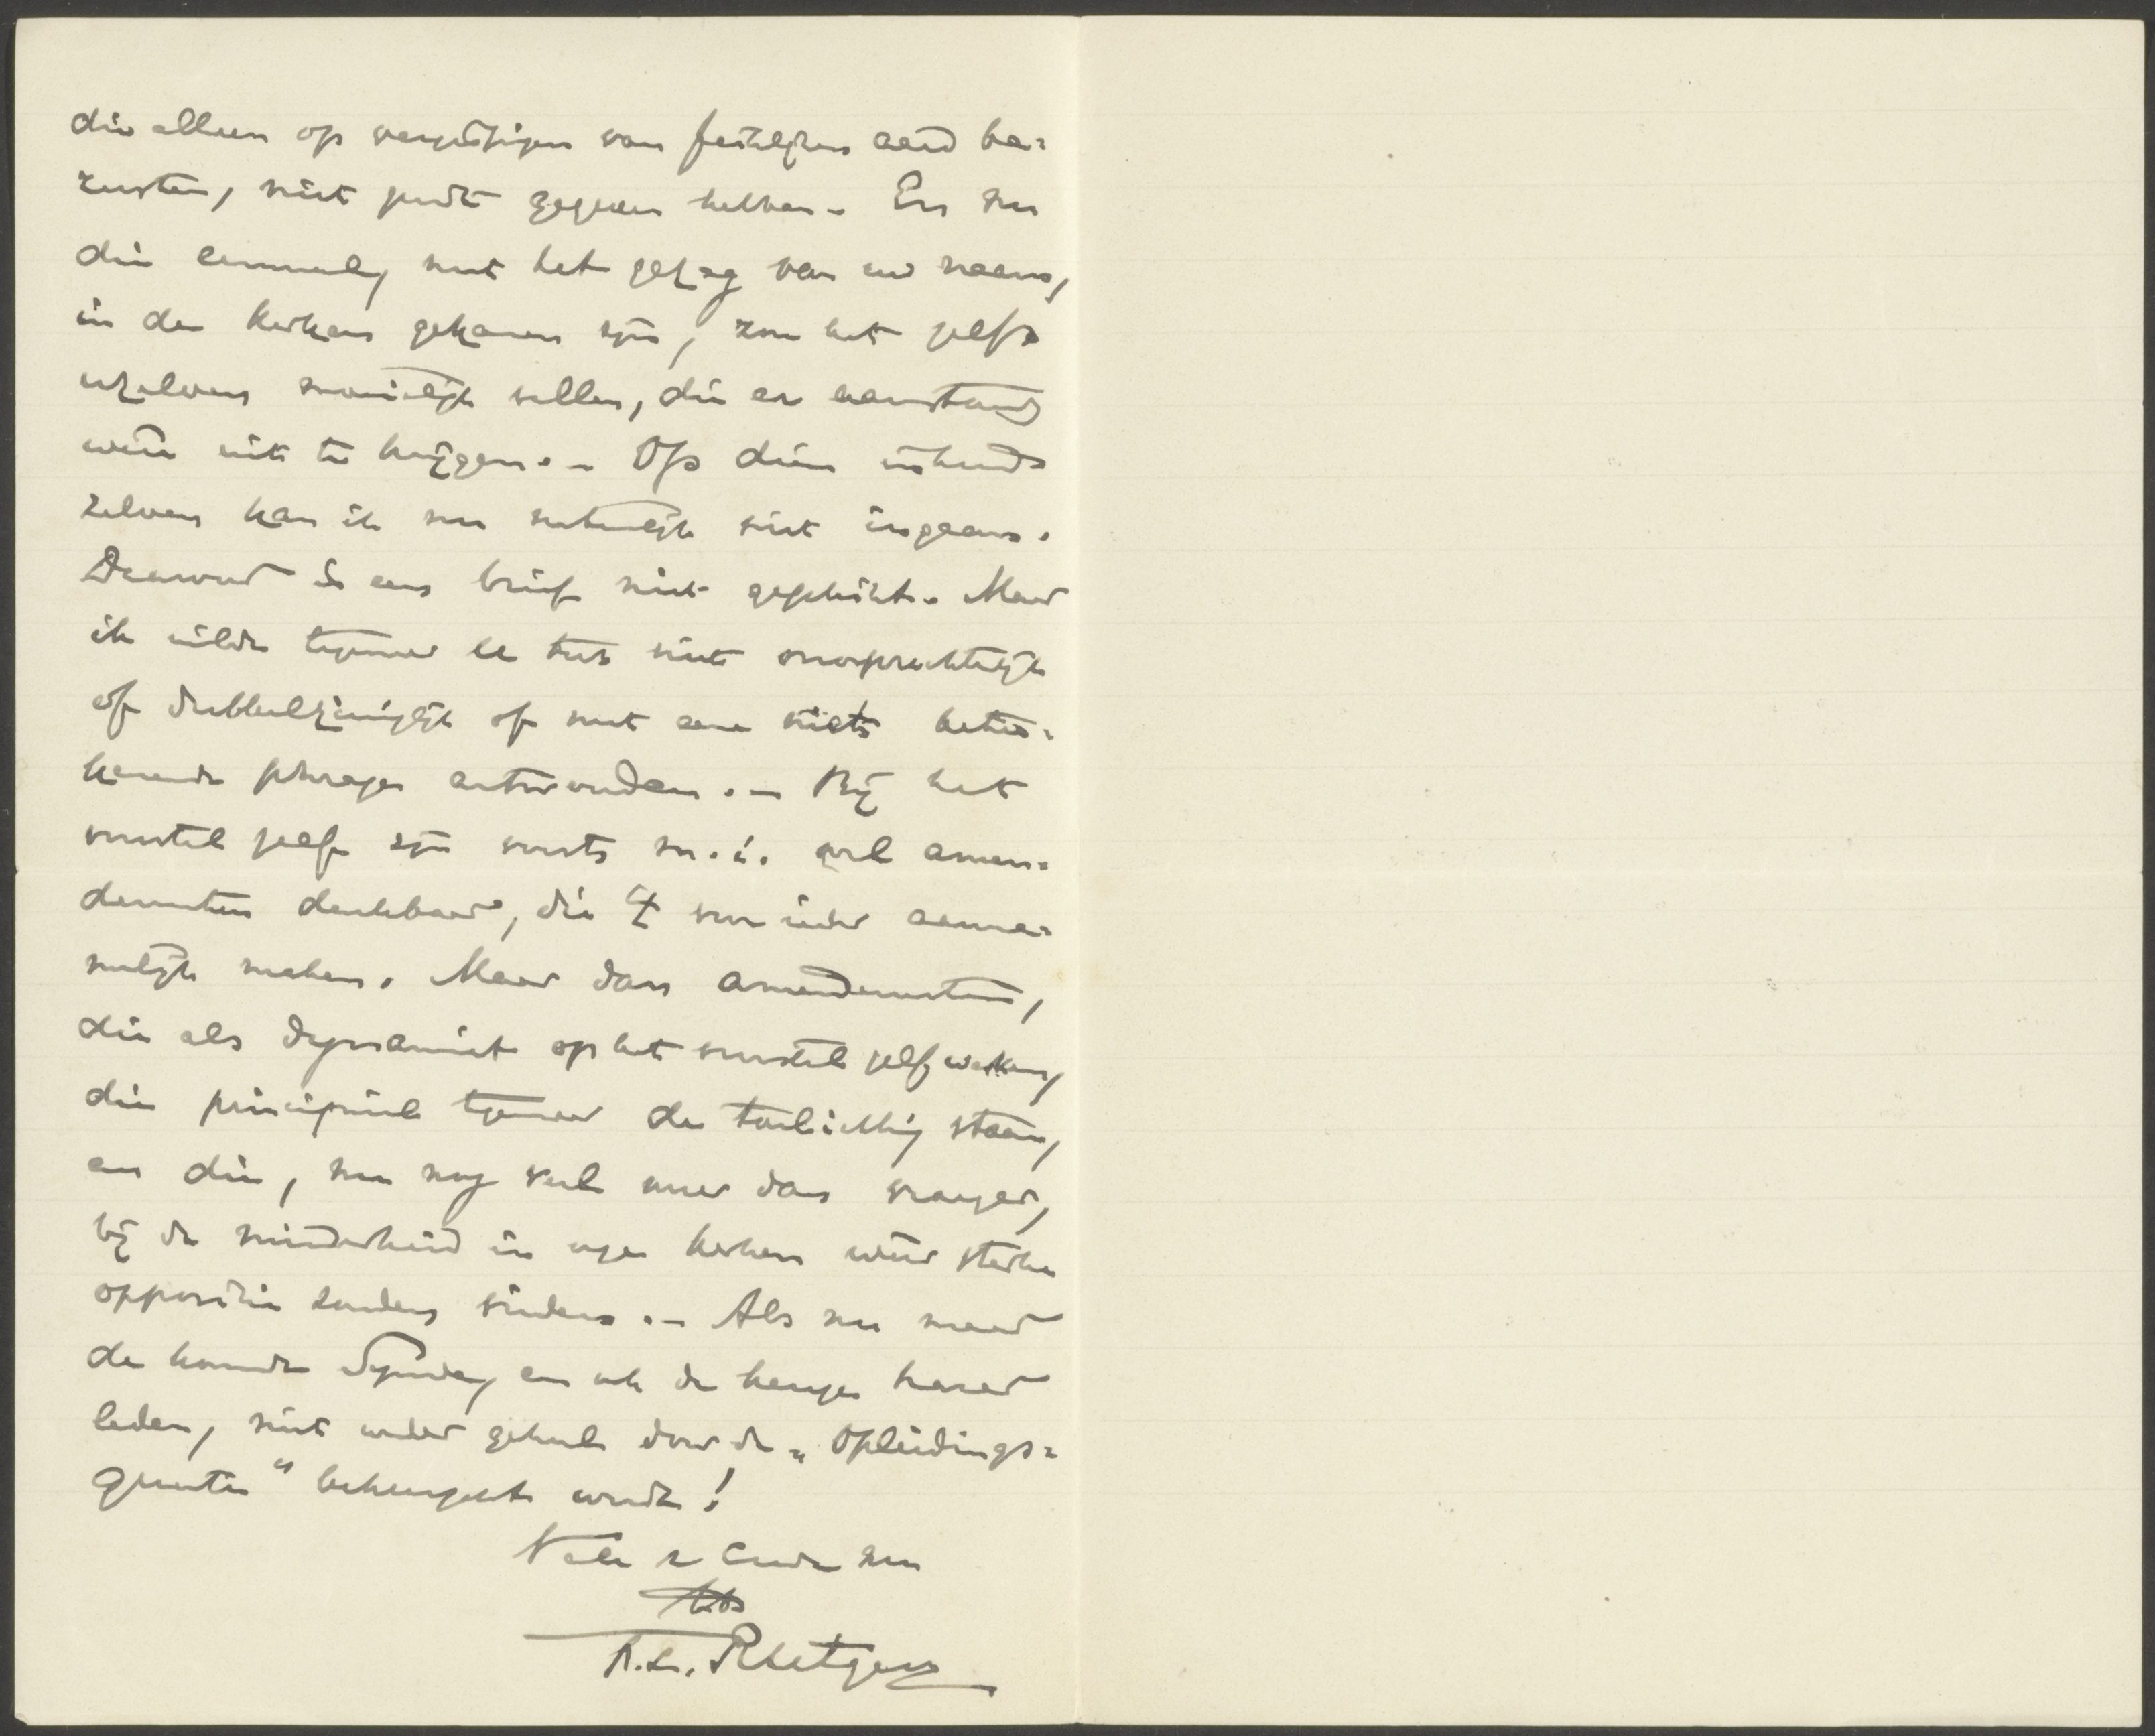 die alleen op vergissingen van feitelijken aard be=
rusten, niet juist gegeven hebben. – En nu
die eenmaal, met het gezag van uw naam,
in de kerken gekomen zijn, zou het zelfs
uzelven moeielijk vallen, die er aanstonds
weer uit te krijgen. – Op dien inhoud
zelven kan ik nu natuurlijk niet ingaan.
Daarvoor is een brief niet geschikt. Maar
ik wilde tegenover U toch niet onoprechtelijk
of dubbelzinniglijk of met een niets betee=
kenende phrase antwoorden. – Bij het
voorstel zelf zijn voorts m.i. wel amen=
dementen denkbaar, die 't voor ieder aanne=
melijk maken. Maar dan amendementen,
die als dynamiet op het voorstel zelf werken,
die principieel tegenover de toelichting staan,
en die, nu nog veel meer dan vroeger,
bij de minderheid in onze kerken weer sterke
oppositie zouden vinden. – Als nu maar
de komende Synode, en ook de keuze harer
leden, niet weder geheel door de „Opleidings=
quaestie" beheerscht wordt!
Vale
F.L. Rutgers